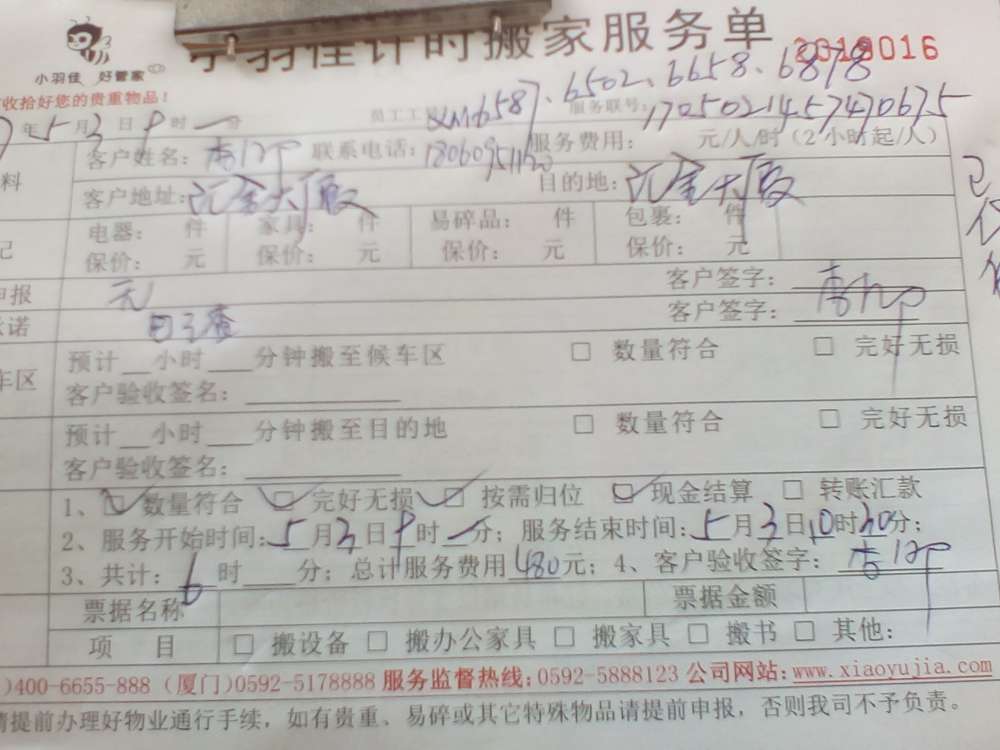 小羽佳计时搬家服务单 2019016
小羽佳 好管家
收拾好您的贵重物品!
员工工号 6587、6502、6658、6878
年5月3日9时一分 服务联号: 1705021457470675
客户姓名: 联系电话: 服务费用: 元/人/时(2小时起/人)
料
客户地址: 汇金大厦 目的地: 汇金大厦
电器: 件 家具: 件 易碎品: 件 包裹: 件
保价: 元 保价: 元 保价: 元 保价: 元
记
申报 无 客户签字:
承诺 客户签字:
预计__小时___分钟搬至候车区 □ 数量符合 □ 完好无损
车区
客户验收签名:
预计__小时___分钟搬至目的地 □ 数量符合 □ 完好无损
客户验收签名:
1、☑数量符合 ☑完好无损 ☑按需归位 ☑现金结算 □ 转账汇款
2、服务开始时间:5月3日9时一分;服务结束时间:5月3日10时30分;
3、共计:6时___分;总计服务费用480元;4、客户验收签字:
票据名称 票据金额
项 目 □ 搬设备 □ 搬办公家具 □ 搬家具 □ 搬书 □ 其他:
)400-6655-888 (厦门)0592-5178888 服务监督热线:0592-5888123 公司网站:www.xiaoyujia.com
请提前办理好物业通行手续,如有贵重、易碎或其它特殊物品请提前申报,否则我司不予负责。